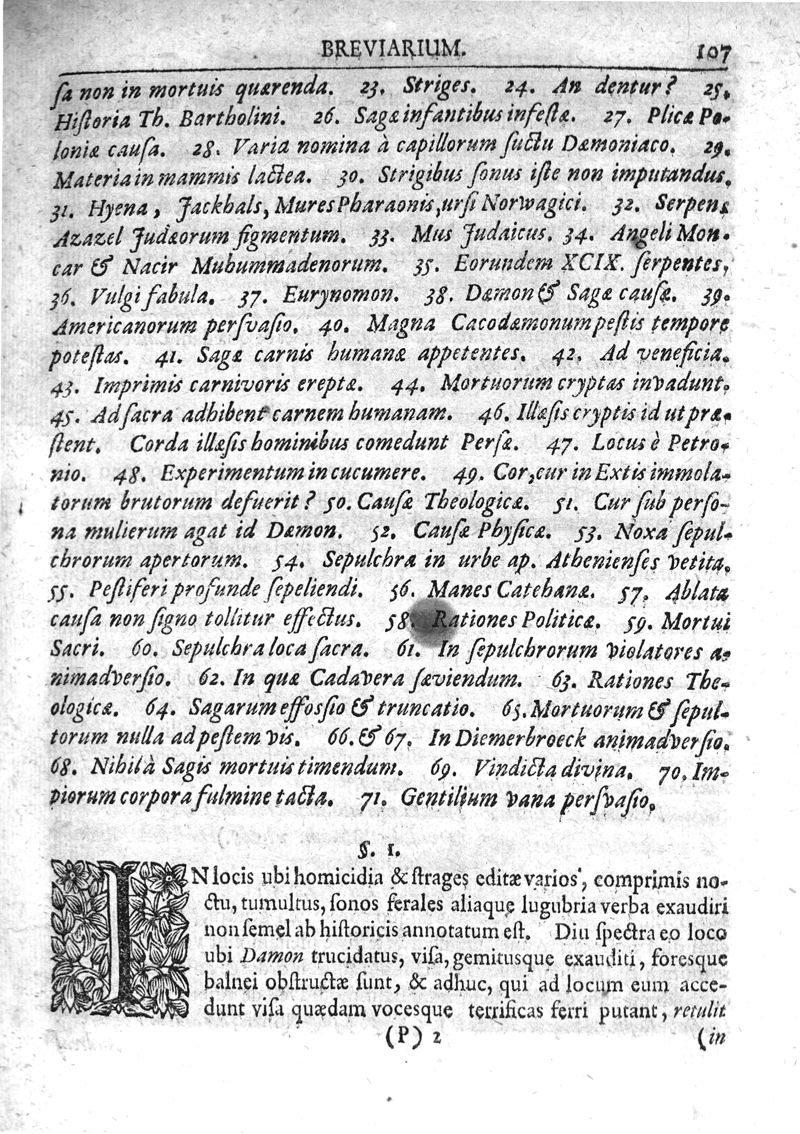 BREVIARIUM. 107
ſa non in mortuis quærenda. 23. Striges. 24. An dentur? 25.
Hiſtoria Th. Bartholini. 26. Sagæ infantibus infeſtæ. 27. Plicæ Po-
loniæ cauſa. 28. Varia nomina à capillorum ſuctu Dæmoniaco. 29.
Materia in mammis lactea. 30. Strigibus ſonus iſte non imputandus.
31. Hyena, Jackhals, Mures Pharaonis, urſi Norwagici. 32. Serpens
Azazel Judæorum figmentum. 33. Mus Judaicus. 34. Angeli Mon-
car & Nacir Muhummadenorum. 35. Eorundem XCIX. ſerpentes.
36. Vulgi fabula. 37. Eurynomon. 38. Dæmon & Sagæ cauſæ. 39.
Americanorum perſvaſio. 40. Magna Cacodæmonum peſtis tempore
poteſtas. 41. Sagæ carnis humanæ appetentes. 42. Ad veneficia.
43. Imprimis carnivoris ereptæ. 44. Mortuorum cryptas invadunt.
45. Ad ſacra adhibent carnem humanam. 46. Illæſis cryptis id ut præ-
ſtent. Corda illæſis hominibus comedunt Perſæ. 47. Locus è Petro-
nio. 48. Experimentum in cucumere. 49. Cor, cur in Extis immola-
torum brutorum defuerit? 50. Cauſæ Theologicæ. 51. Cur ſub perſo-
na mulierum agat id Dæmon. 52. Cauſæ Phyſicæ. 53. Noxa ſepul-
chrorum apertorum. 54. Sepulchra in urbe ap. Athenienſes vetita.
55. Peſtiferi profunde ſepeliendi. 56. Manes Catehanæ. 57. Ablata
cauſa non ſigno tollitur effectus. 58. Rationes Politicæ. 59. Mortui
Sacri. 60. Sepulchra loca ſacra. 61. In ſepulchrorum violatores a-
nimadverſio. 62. In quæ Cadavera ſæviendum. 63. Rationes The-
ologicæ. 64. Sagarum effoſſio & truncatio. 65. Mortuorum & ſepul-
torum nulla ad peſtem vis. 66. & 67. In Diemerbroeck animadverſio.
68. Nihil à Sagis mortuis timendum. 69. Vindicta divina. 70. Im-
piorum corpora fulmine tacta. 71. Gentilium vana perſvaſio.
§. 1.
IN locis ubi homicidia & ſtrages editæ varios, comprimis no-
ctu, tumultus, ſonos ferales aliaque lugubria verba exaudiri
non ſemel ab hiſtoricis annotatum eſt. Diu ſpectra eo loco
ubi Damon trucidatus, viſa, gemitusque exauditi, foresque
balnei obſtructæ ſunt, & adhuc, qui ad locum eum acce-
dunt viſa quædam vocesque terrificas ferri putant, retulit
(P) 2 (in